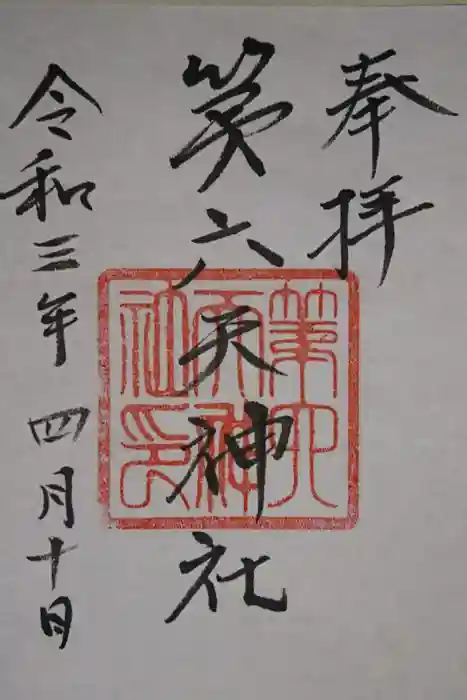 奉拝
第六天神社
第六天神社印
令和三年四月十日